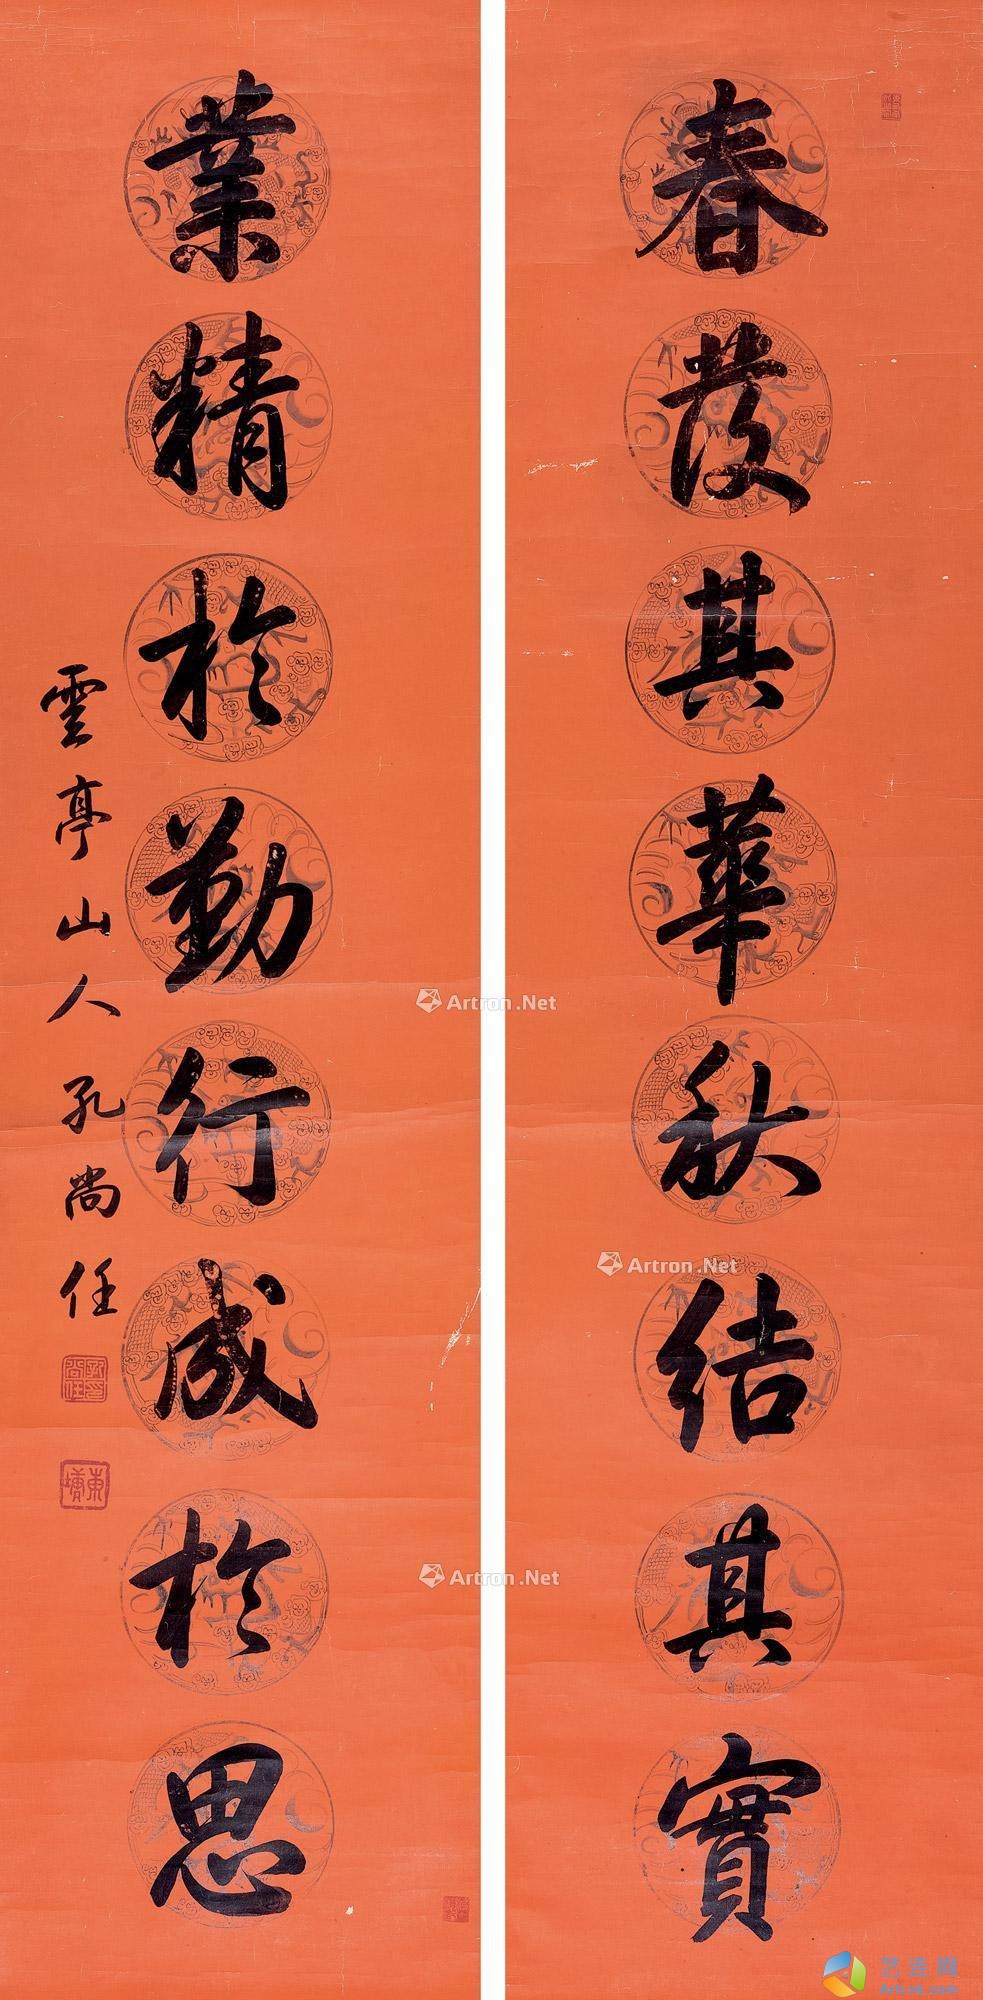 春發其華秋結其實
業精於勤行成於思
雲亭山人孔尚任
東塘
Artron.Net
Artron.Net
Artron.Net
艺连网
ArtLnk.com